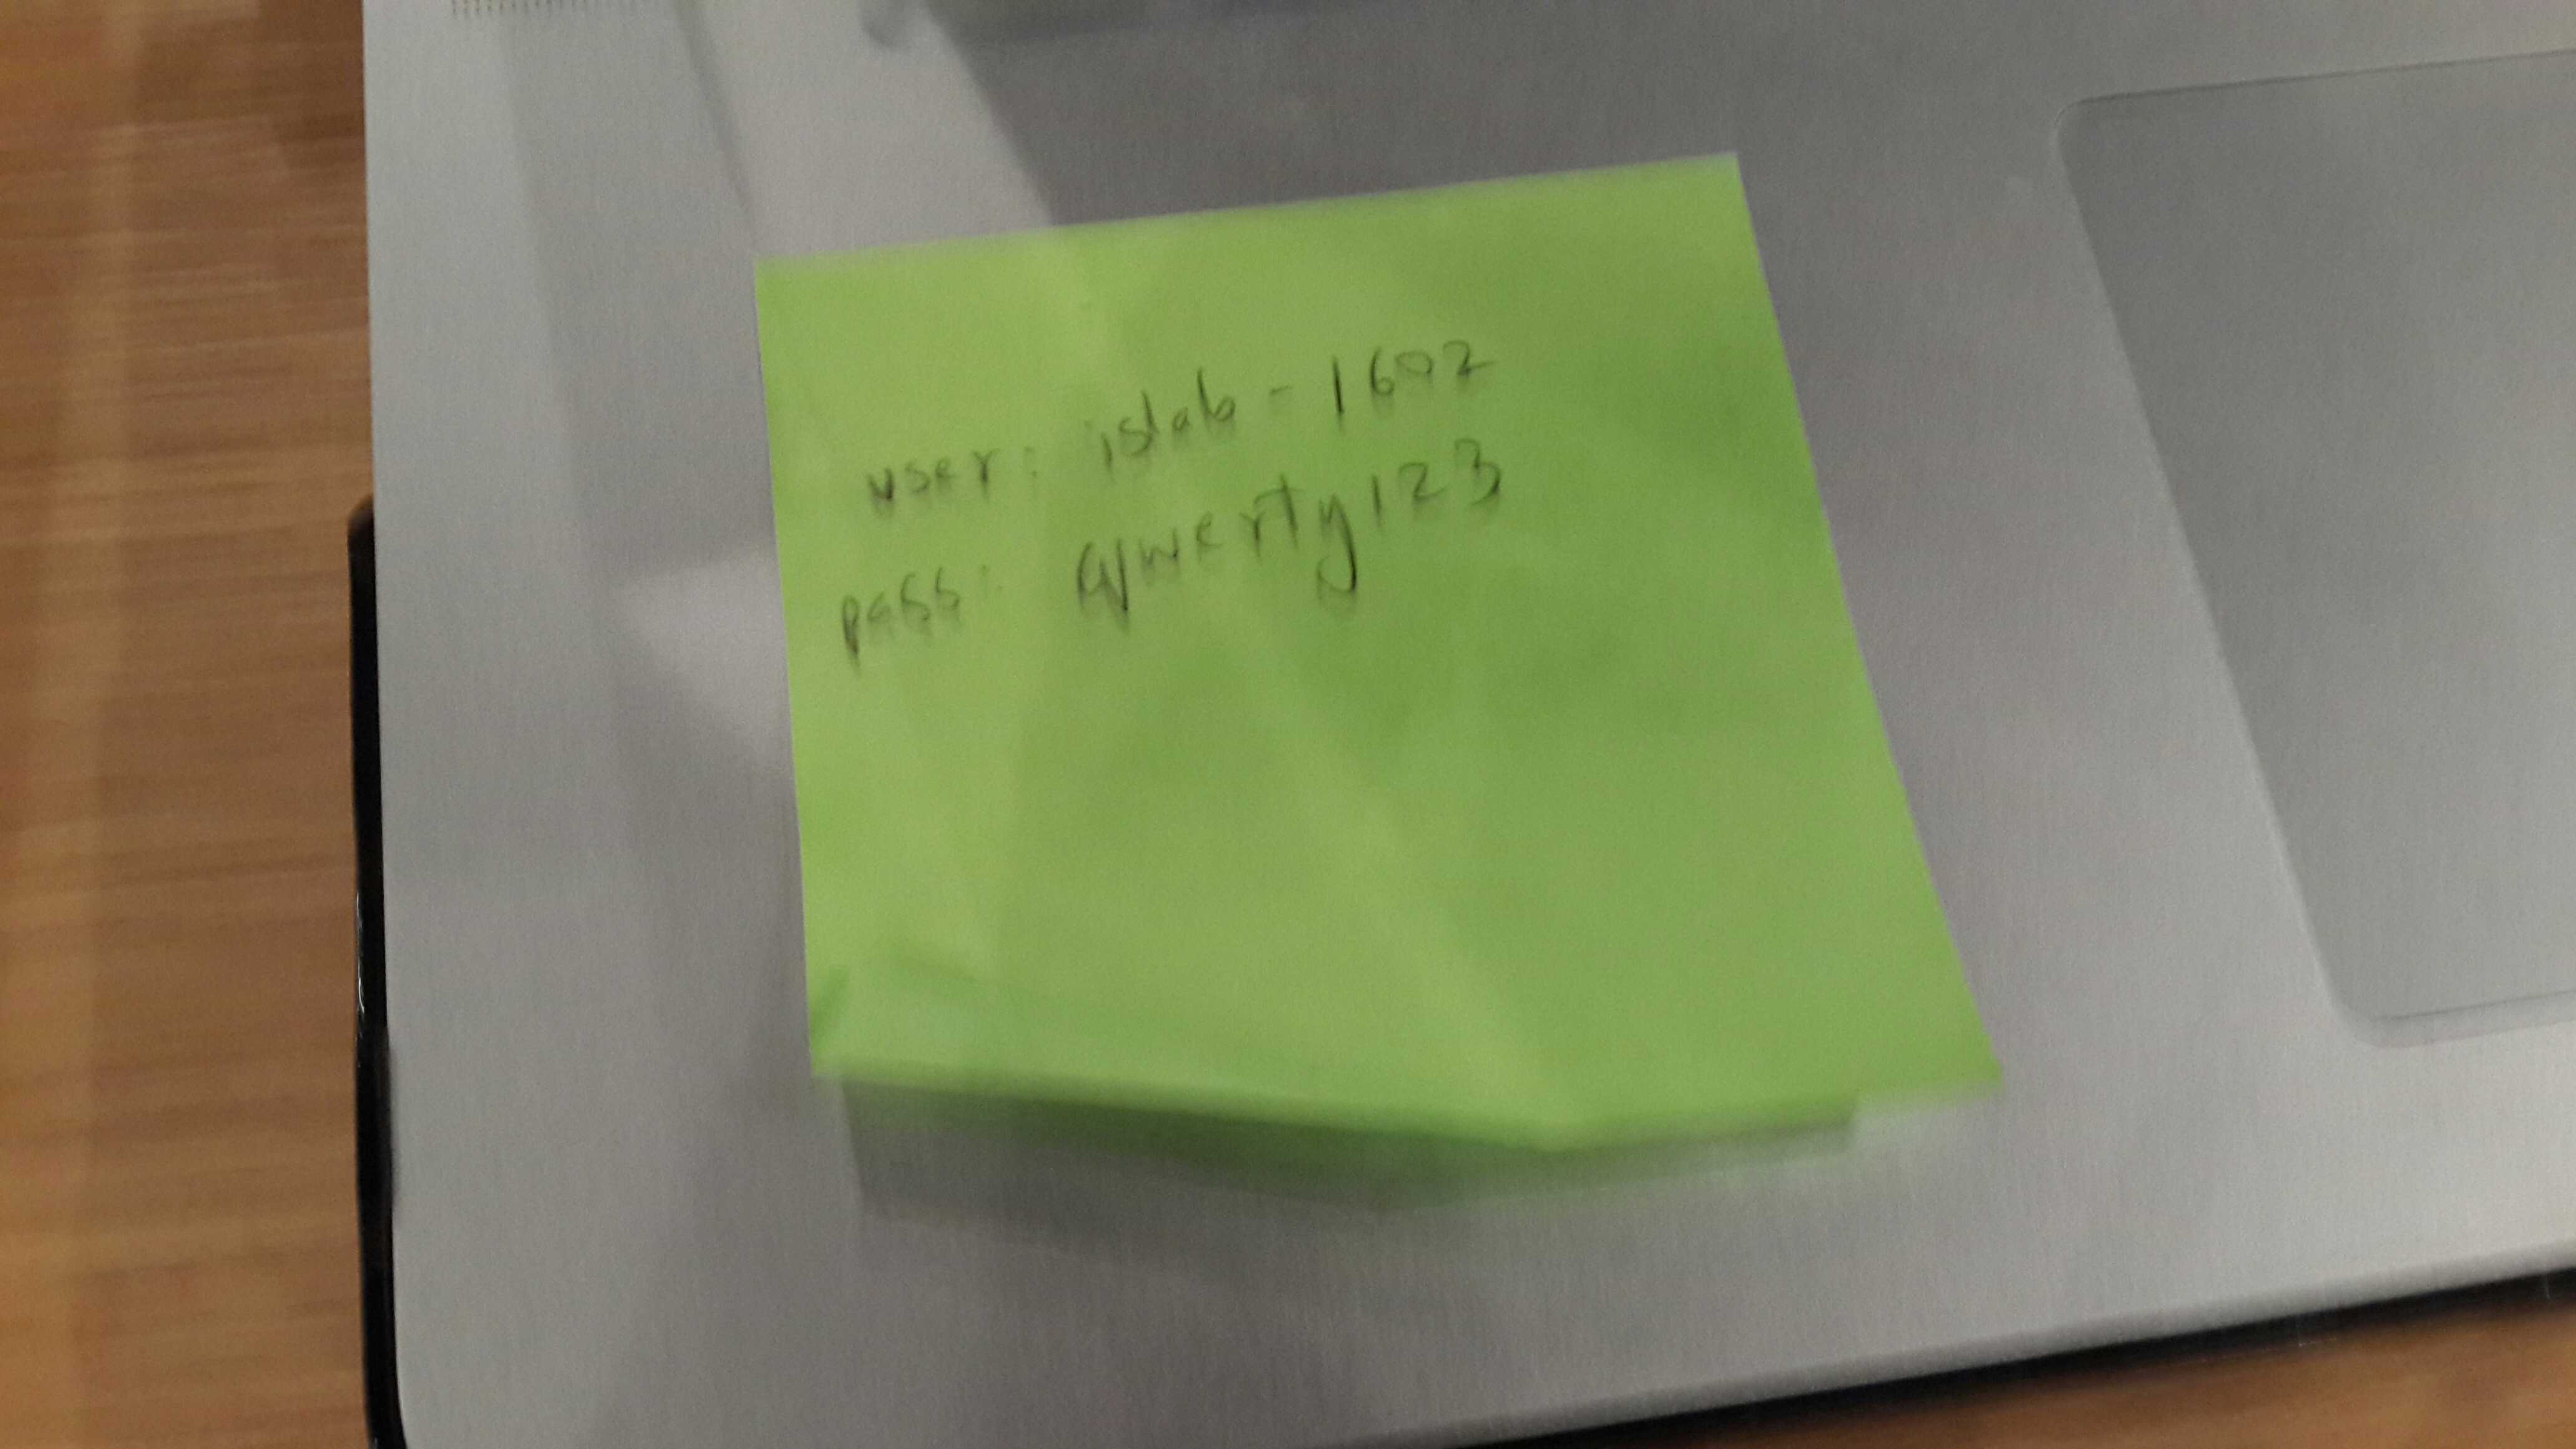 user: islab-1607
pass: Qwerty123